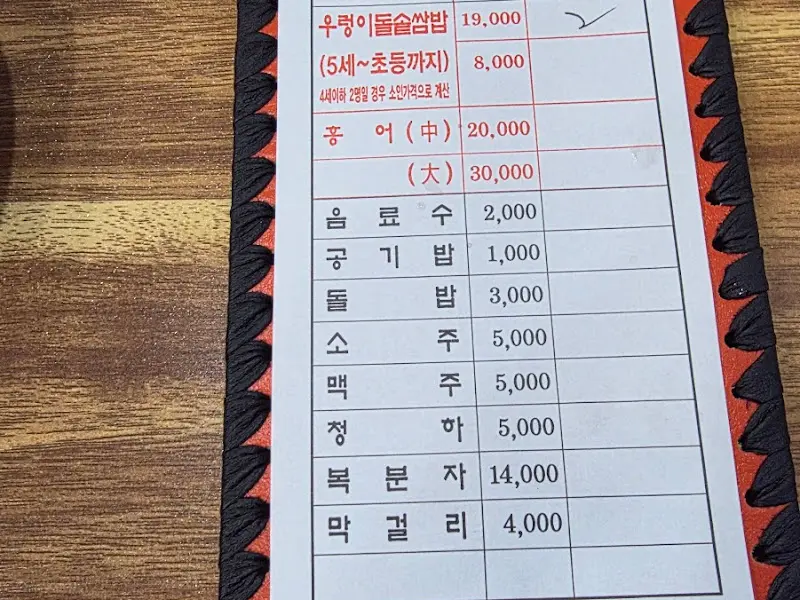 우렁이돌솥쌈밥 19,000
(5세~초등까지) 8,000
4세이하 2명일 경우 소인가격으로 계산
홍 어 (中) 20,000
(大) 30,000
음 료 수 2,000
공 기 밥 1,000
돌 밥 3,000
소 주 5,000
맥 주 5,000
청 하 5,000
복 분 자 14,000
막 걸 리 4,000